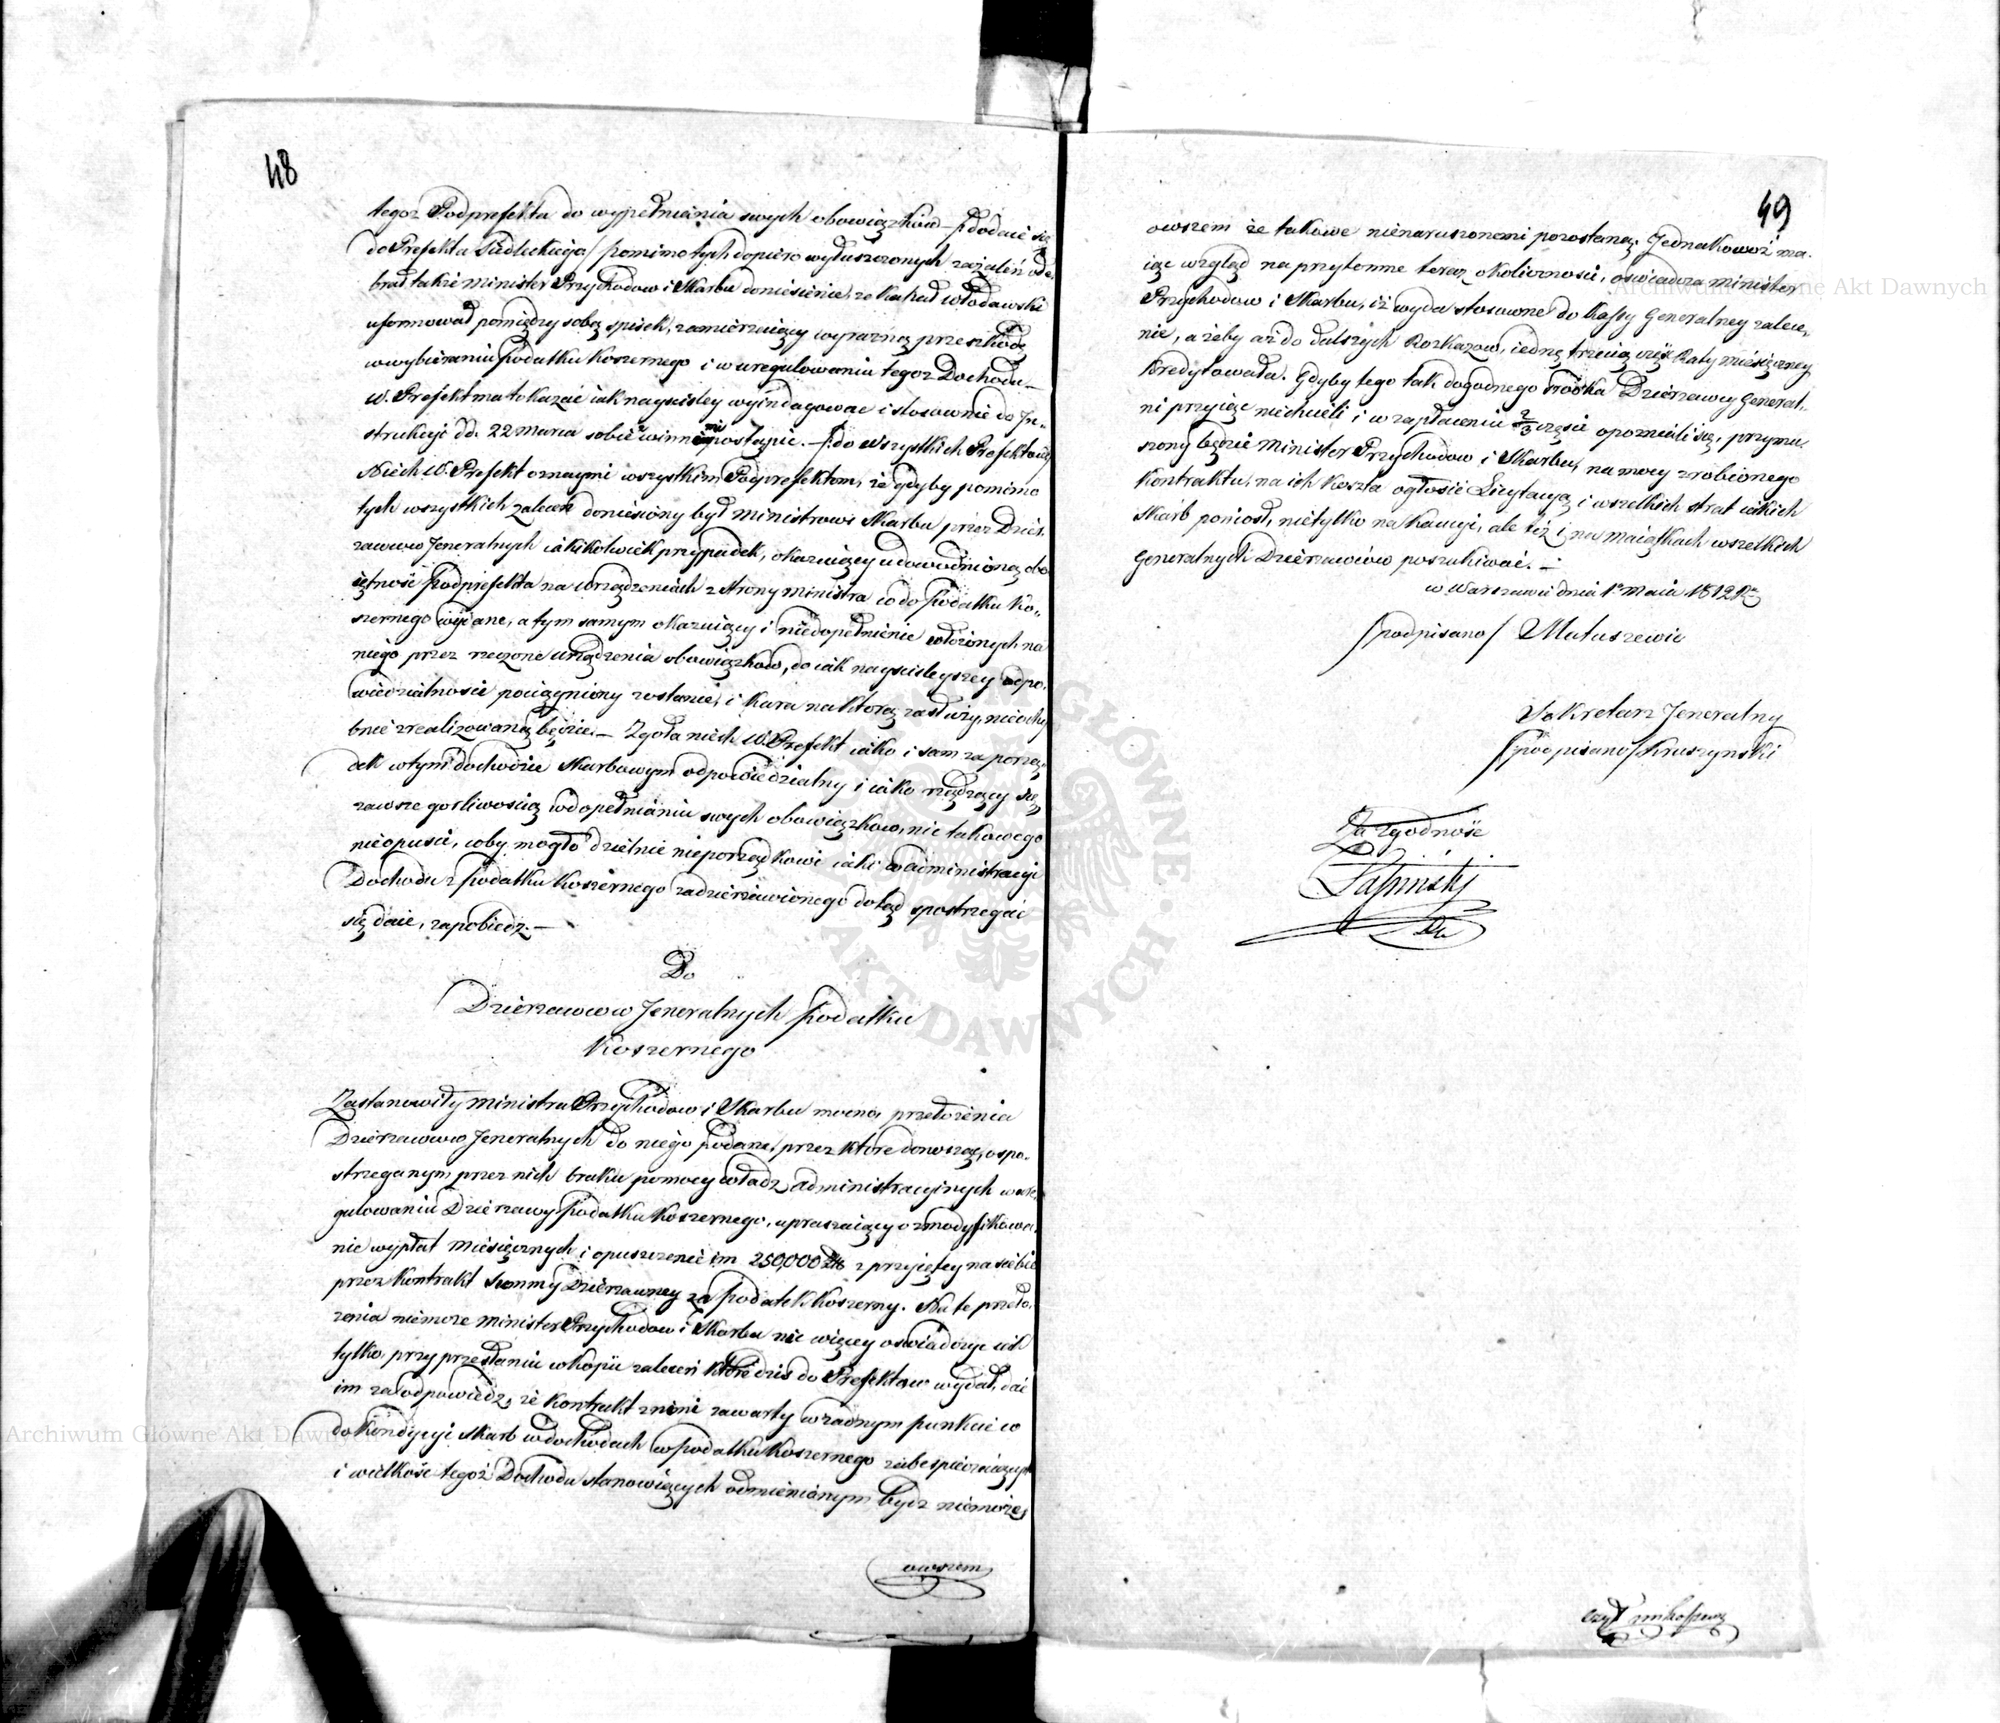 48
tegoż Podprefekta do wypełniania swych obowiązków — /: dodać się
do Prefekta Siedleckiego / pomimo tych dopiero wyłuszczonych zażaleń ode„
brał także Minister Przychodow i Skarbu doniesienie, że Kahał włodawski
uformował pomiędzy sobą spisek, zamierzaiący wyraźną przeszkodę
w wybieraniu podatku koszernego i w uregulowaniu tegoż Dochodu —
W. Prefekt ma to kazać iak nayscisley wyindagować i stosownie do In„
strukcyi dd. 22 marca sobie z winnemi postąpić. — /: do wszystkich Prefektów
Niech W. Prefekt oznaymi wszystkim Podprefektom, że gdyby pomimo
tych wszystkich zaleceń doniesiony był Ministrowi Skarbu przez Dzier„
żawców Jeneralnych iakikolwiek przypadek, okazuiący udowodnioną obo„
iętność Podprefekta na urządzeniach z Strony Ministra co do podatku Ko„
szernego wydane, a tym samym okazuiący i niedopełnienie włożonych na
niego przez rzeczone urządzenia obowiązków, do iak nayscisleyszey odpo„
wiedzialności pociągniony zostanie, i kara na którą zasłuży, nieochy„
bnie zrealizowaną będzie. — Zgoła niech W. Prefekt iako i sam za porzą„
dek w tym dochodzie Skarbowym odpowiedzialny i iako rządzący się
zawsze gorliwością w dopełnianiu swych obowiązkow, nic takowego
nieopuści, coby mogło dzielnie nieporządkowi iaki w administracyi
Dochodu z podatku Koszernego zadzierżawionego dotąd spostrzegać
się daie, zapobiedz. —
Do
Dzierzawców Jeneralnych podatku
Koszernego
Zastanowiły Ministra Przychodow i Skarbu mocno, przełożenia
Dzierzawców Jeneralnych do niego podane, przez które donosząc o spo„
strzeganym przez nich braku pomocy władz administracyinych w ure„
gulowaniu Dzierżawy podatku Koszernego, upraszaiący o zmodyfikowa„
nie wypłat miesięcznych i opuszczenie im 250,000 Złł. z przyiętey na siebie
przez kontrakt Summy Dzierzawney za podatek koszerny. Na te przeło„
żenia niemoże Minister Przychodow i Skarbu nic więcey oswiadczyć iak
tylko, przy przesłaniu w kopii zaleceń które dziś do Prefektow wydał, dać
im za odpowiedz, że kontrakt z nimi zawarty w żadnym punkcie co
do kondycyi Skarb w dochodach w podatku Koszernego zabezpieczaiących
i wielkość tegoż Dochodu stanowiących odmienionym bydz niemoże,
owszem
49
owszem że takowe nienaruszonemi pozostaną. Jednakowoż ma„
iąc wzgląd na przytomne teraz okoliczności, oświadcza Minister
Przychodow i Skarbu, iż wyda stosowne do Kassy Generalney zalece„
nie, ażeby aż do dalszych Rozkazow, iedną trzecią część Raty miesięczney
Kredytowała. Gdyby tego tak dogodnego środka Dzierzawcy General„
ni przyiąć niechcieli i w zapłaceniu 2/3 części opoźniali się, przymu„
szony będzie Minister Przychodow i Skarbu, na mocy zrobionego
Kontraktu, na ich koszta ogłosić Licytacyą i wszelkich strat iakich
Skarb poniosł, nietylko na Kaucyi, ale też i na maiątkach wszelkich
Generalnych Dzierzawców poszukiwać. —
w Warszawie dnia 1o Maia 1812 Ru
/podpisano/ Matuszewic
Sekretarz Jeneralny
/podpisano/ Kruszynski
Za zgodność